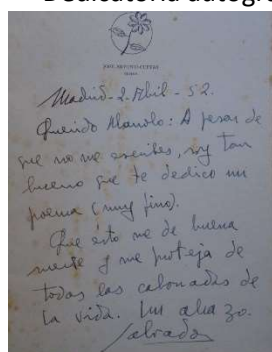 Dedicatoria autógr
Madrid-2-Abril-52.
Querido Manolo: A pesar de
que no me escribes, soy tan
bueno que te dedico un
poema (muy fino).
Que esto me de buena
suerte y me proteja de
todas las cabonadas de
la vida. Un abrazo.
Salvador